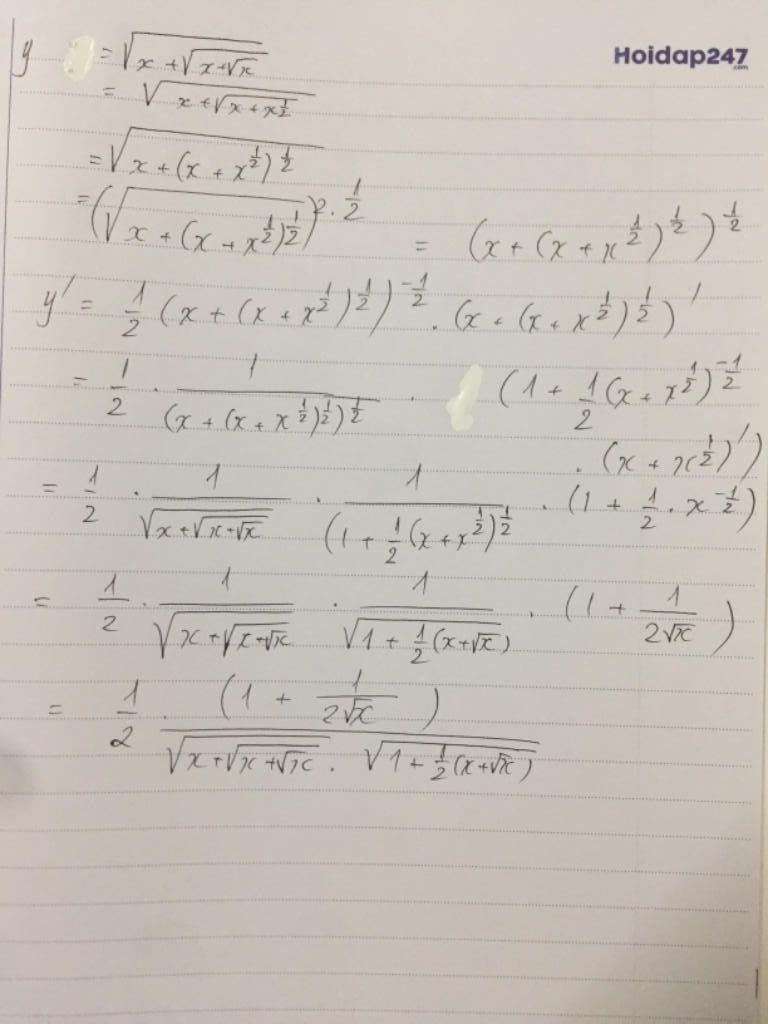 Hoidap247.com
y = √(x + √(x + √x))
= √(x + √(x + x^(1/2)))
= √(x + (x + x^(1/2))^(1/2))
= (√(x + (x + x^(1/2))^(1/2)))^(2 · 1/2) = (x + (x + x^(1/2))^(1/2))^(1/2)
y' = 1/2 (x + (x + x^(1/2))^(1/2))^(-1/2) . (x + (x + x^(1/2))^(1/2))'
= 1/2 · 1/((x + (x + x^(1/2))^(1/2))^(1/2)) · (1 + 1/2 (x + x^(1/2))^(-1/2)
. (x + x^(1/2))')
= 1/2 · 1/√(x + √(x + √x)) · 1/((1 + 1/2 (x + x^(1/2))^(1/2)) · (1 + 1/2 · x^(-1/2))
= 1/2 · 1/√(x + √(x + √x)) · 1/√(1 + 1/2 (x + √x)) · (1 + 1/(2√x))
= 1/2 · (1 + 1/(2√x)) / (√(x + √(x + √x)) . √(1 + 1/2 (x + √x)))